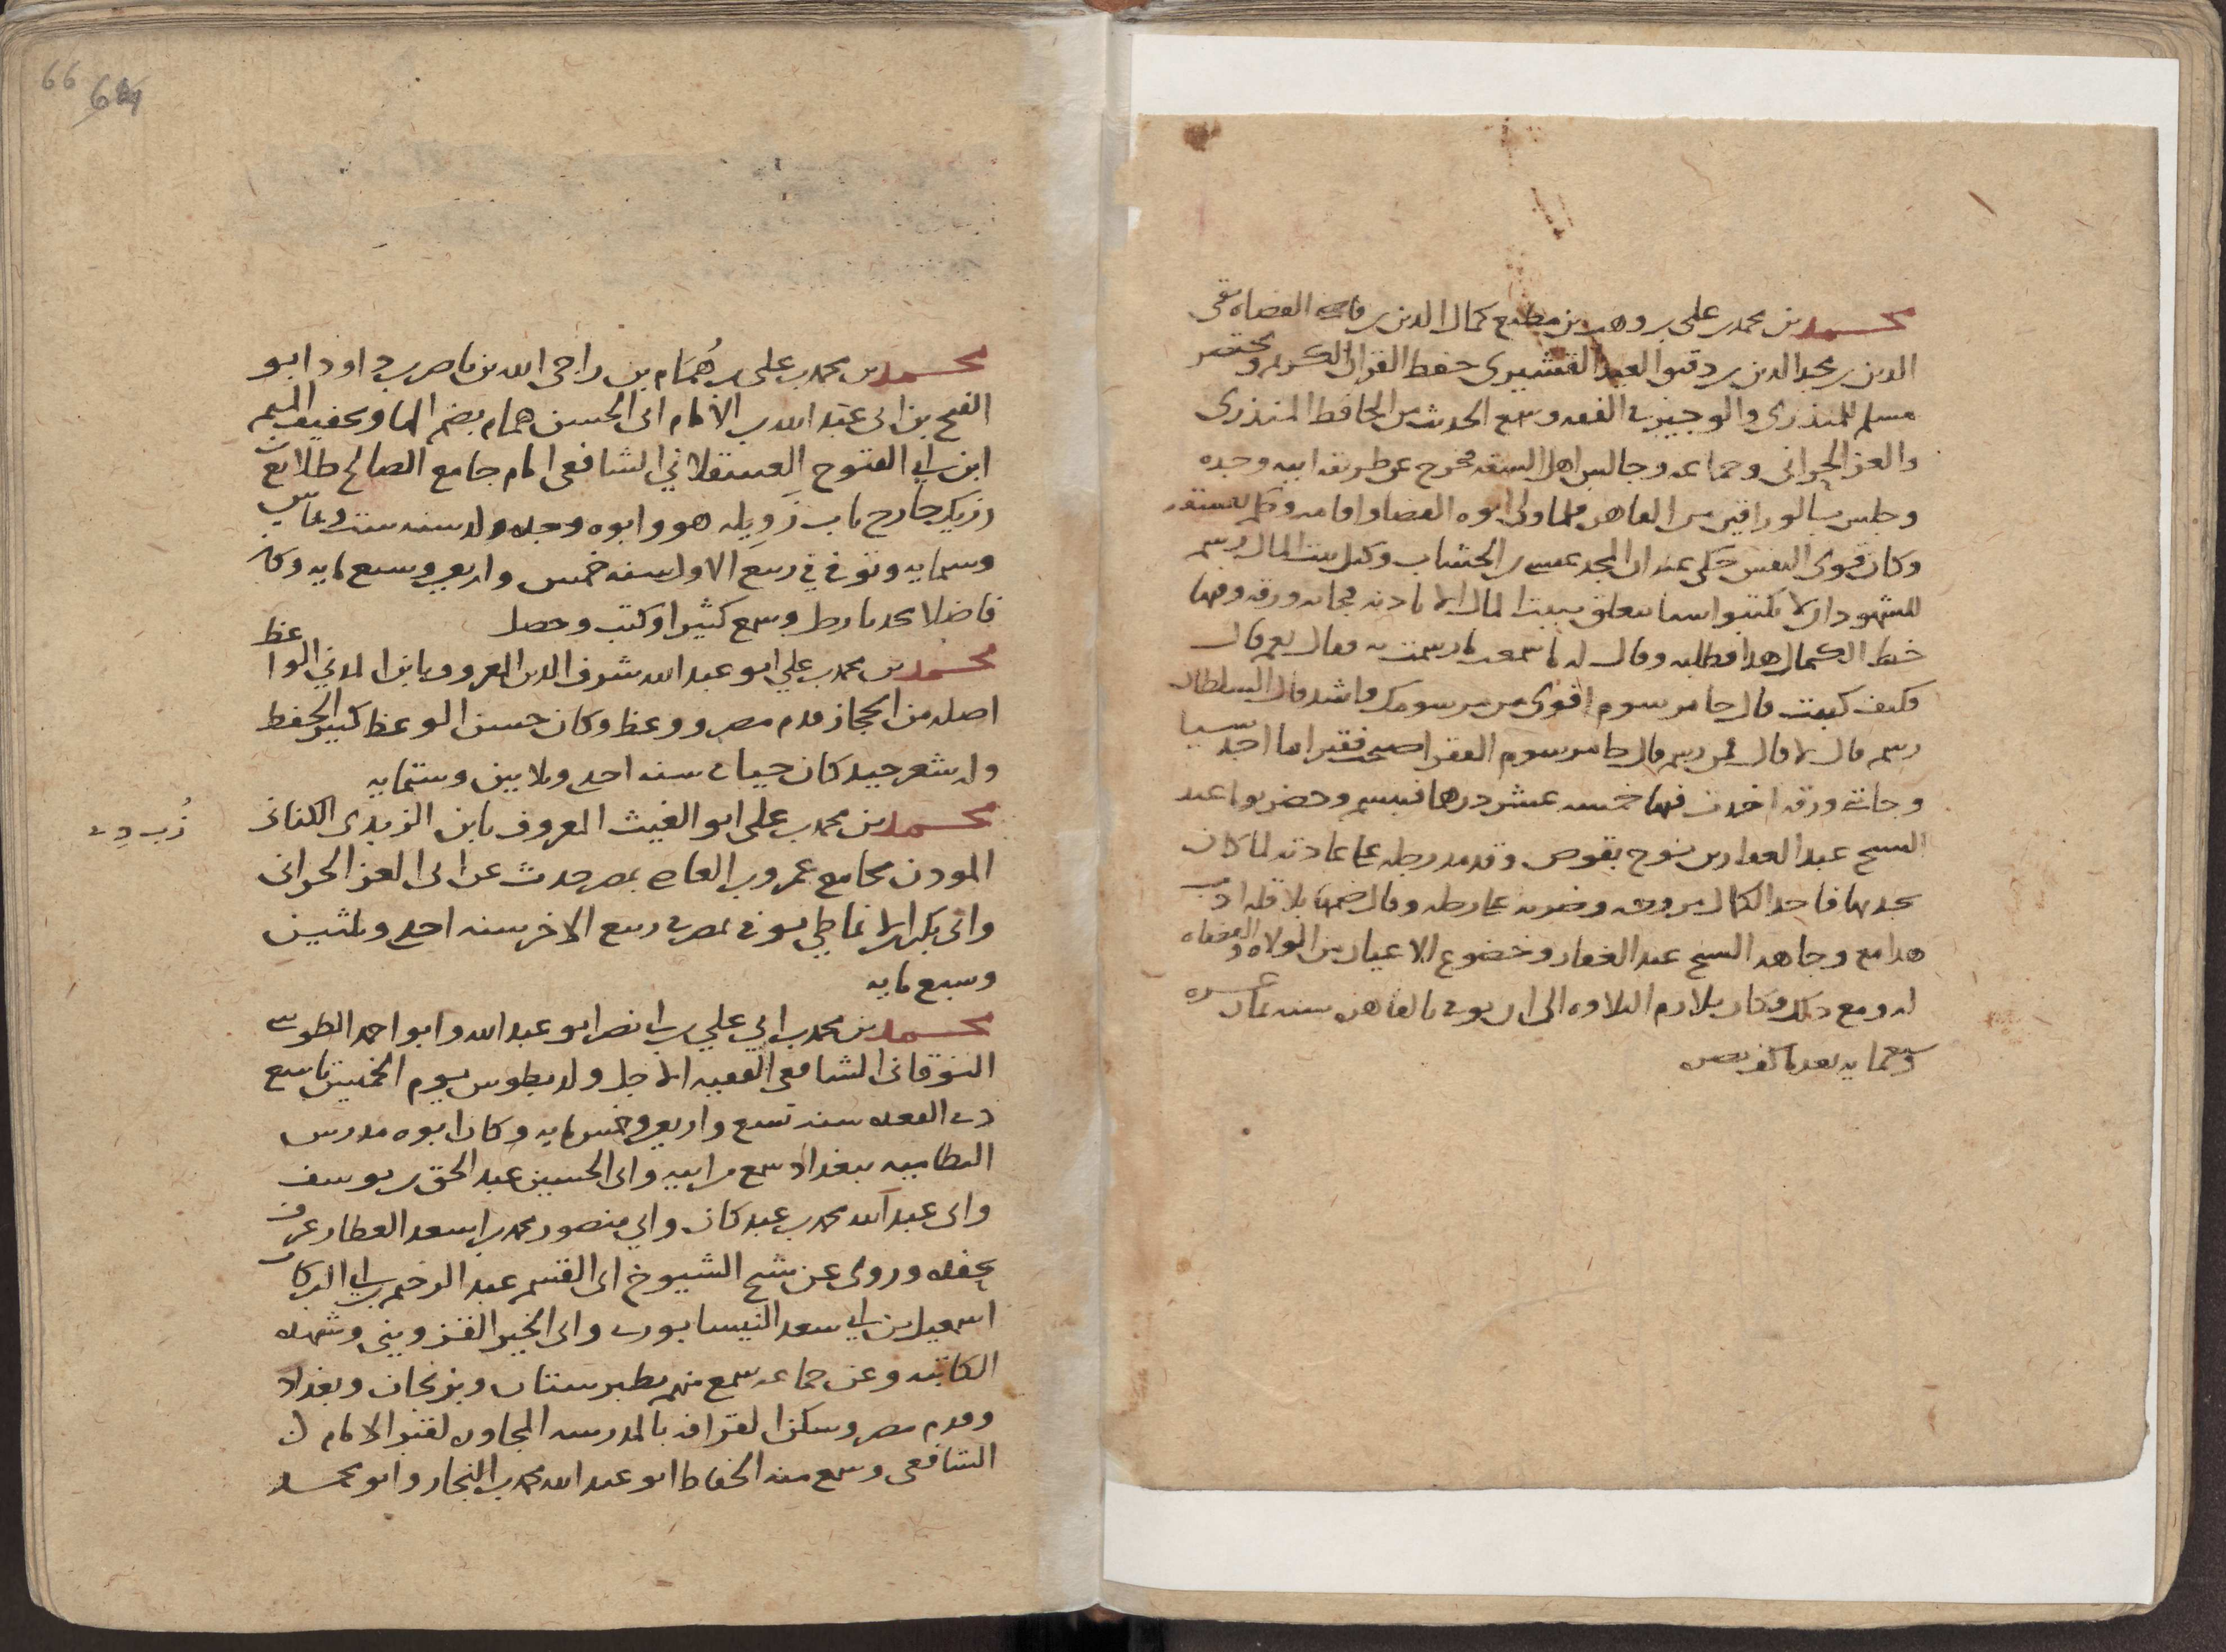 محمد بن محمد بن علي بن وهب بن مطيع كمال الدين بن قاضي القضاه تقي
الدين بن مجد الدين بن دقيق العيد القشيري حفظ القران الكريم ومختصر
مسلم للمنذري والوجيز في الفقه وسمع الحديث من الحافظ المنذري
والعز الحراني وجماعه وجالس اهل السفه فخرج عن طريقه ابيه وجده
وجلس بالوراقين من القاهره فلما ولي ابوه القضا واقامه
وكان قوي النفس حكي عنه ان المجد عيسى بن الخشاب وكيل بيت المال رسم
للشهود ان لا يكتبوا شيا يتعلق ببيت المال الا باذنه فجاته ورقه وفيها
خط الكمال هذا فطلبه وقال له ما سمعت ما رسمت به فقال نعم قال
فكيف كتبت قال جا مرسوم اقوى من مرسومك واشد قال السلطان
رسم قال لا قال فمن رسم قال جا مرسوم الفقر اصبحت فقيرا ما اجد شيا
وجاتني ورقه اخذت فيها خمسه عشر درهما فتبسم وحضر يوما عند
الشيخ عبد الغفار بن نوح بقوص وقد مد رجله على عادته لما كان
يجد بها فاخذ الكمال مروحه وضربه على رجله وقال ضمها بلا قله ادب
هذا مع وجاهه الشيخ عبد الغفار وخضوع الاعيان من الولاه والقضاه
له ومع ذلك وكان يلازم التلاوه الى ان توفي بالقاهره سنه ثمان عشره
وسبعمايه بعد ما كف بصره
66
محمد بن محمد بن علي بن هُمَام بن راجي الله بن ناصر بن داود ابو
الفتح بن ابي عبد الله بن الامام ابي الحسن همام بضم الها وتخفيف الميم
ابن ابي الفتوح العسقلاني الشافعي امام جامع الصالح طلايع بن
رزيك خارج باب زَوِيله هو وابوه وجده ولد سنه ست وثمانين
وستمايه وتوفي في ربيع الاول سنه خمس واربعين وسبع مايه وكان
فاضلا محدثا رحل وسمع كثيرا وكتب وحصل
محمد بن محمد بن علي ابو عبد الله شرف الدين المعروف بابن المدني الواعظ
اصله من الحجاز قدم مصر ووعظ وكان حسن الوعظ كثير الحفظ
وله شعر جيد كان حيا في سنه احدى وثلاثين وستمايه
محمد بن محمد بن علي ابو الغيث المعروف بابن الزبدي الكناني
زُبـ دِى
الموذن بجامع عمرو بن العاص بمصر حدث عن ابي العز الحراني
وابي بكر الانماطي توفي بمصر في ربيع الاخر سنه احدى وثلثين
وسبع مايه
محمد بن محمد بن ابي علي بن ابي نصر ابو عبد الله وابو احمد الطوسي
النوقاني الشافعي الفقيه الاجل ولد بطوس يوم الخميس تاسع
ذي القعده سنه تسع واربعين وخمس مايه وكان ابوه مدرس
النظاميه ببغداد سمع من ابيه وابي الحسين عبد الحق بن يوسف
وابي عبد الله محمد بن عبد كان وابي منصور محمد بن اسعد العطار عرف
بحفده وروى عن شيخ الشيوخ ابي القسم عبد الرحيم بن ابي البركات
اسمعيل بن ابي سعد النيسابوري وابي الخير القزويني وشهده
الكاتبه وعن جماعه سمع منهم بطبرستان وبزنجان وبغداد
وقدم مصر وسكن القرافه بالمدرسه المجاوره لقبر الامام
الشافعي وسمع منه الحفاظ ابو عبد الله محمد بن النجار وابو محمد